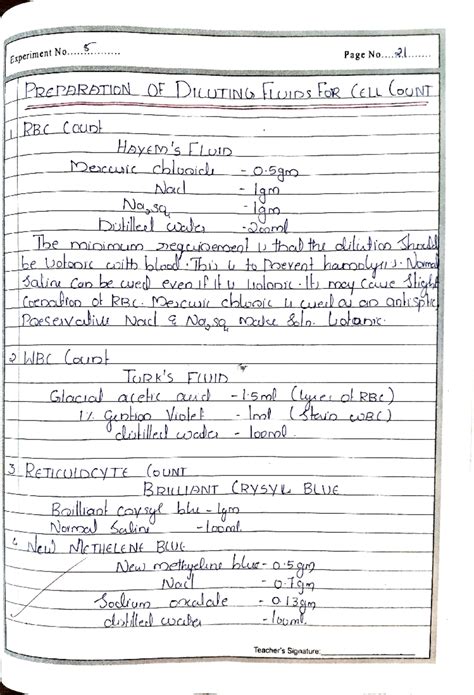 Experiment No.....5.........
Page No....21.......
PREPARATION OF DILUTING FLUIDS FOR CELL COUNT
1. RBC Count
HAYEM'S FLUID
Mercuric chloride - 0.5gm
Nacl - 1gm
Na2SO4 - 1gm
Distilled water - 200ml
The minimum requirement is that the dilution should
be isotonic with blood. This is to Prevent hamolysis. Normal
Saline can be used even if it is isotonic. Its may cause slight
Crenation of RBC. Mercuric chloric is used as an antiseptic
Preservative Nacl & Na2SO4 make Soln. isotonic.
2 WBC Count
TURK'S FLUID
Glacial acetic acid - 1.5ml (lyses of RBC)
1% Gention Violet - 1ml (Stain WBC)
distilled water - 100ml
3 RETICULOCYTE COUNT
BRILLIANT CRYSYL BLUE
Brilliant crysyl blu - 1gm
Normal Saline - 100ml.
4 NEW METHELENE BLUE
New methyeline blue - 0.5gm
Nacl - 0.7gm
Sodium oxalate - 0.13gm
distilled water - 100ml.
Teacher's Signature: